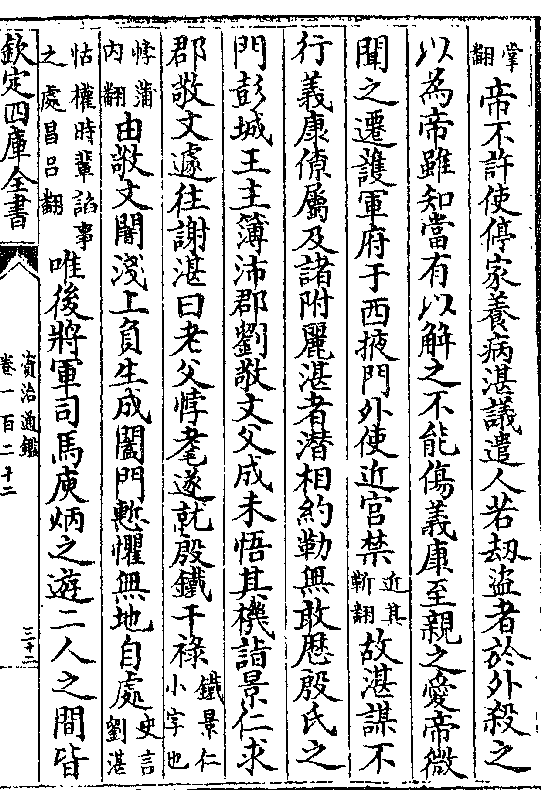 掌翻帝不許使停家養病湛議遣人若刼盗者於外殺之
以為帝雖知當有以解之不能傷義康至親之愛帝微
聞之遷護軍府于西掖門外使近宫禁近其靳翻故湛謀不
行義康僚屬及諸附麗湛者潛相約勒無敢厯殷氏之
門彭城王主簿沛郡劉敬文父成未悟其機詣景仁求
郡敬文遽往謝湛曰老父悖耄遂就殷鐵干禄鐵景仁小字也
悖蒲内翻由敬文闇淺上負生成闔門慙懼無地自處史言劉湛
怙權時輩諂事之處昌吕翻唯後將軍司馬庾炳之遊二人之間皆
欽定四庫全書
資治通鑑
卷一百二十二
三十二